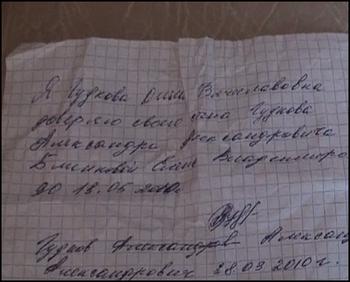 Я Гудкова Вячеславовна
доверяю своего сына Гудкова
Александра Александровича
Блинковой Елене Владимиро
до 18.05 2010г
Гудков Александров Алексан
Александрович 28.03 2010 г.